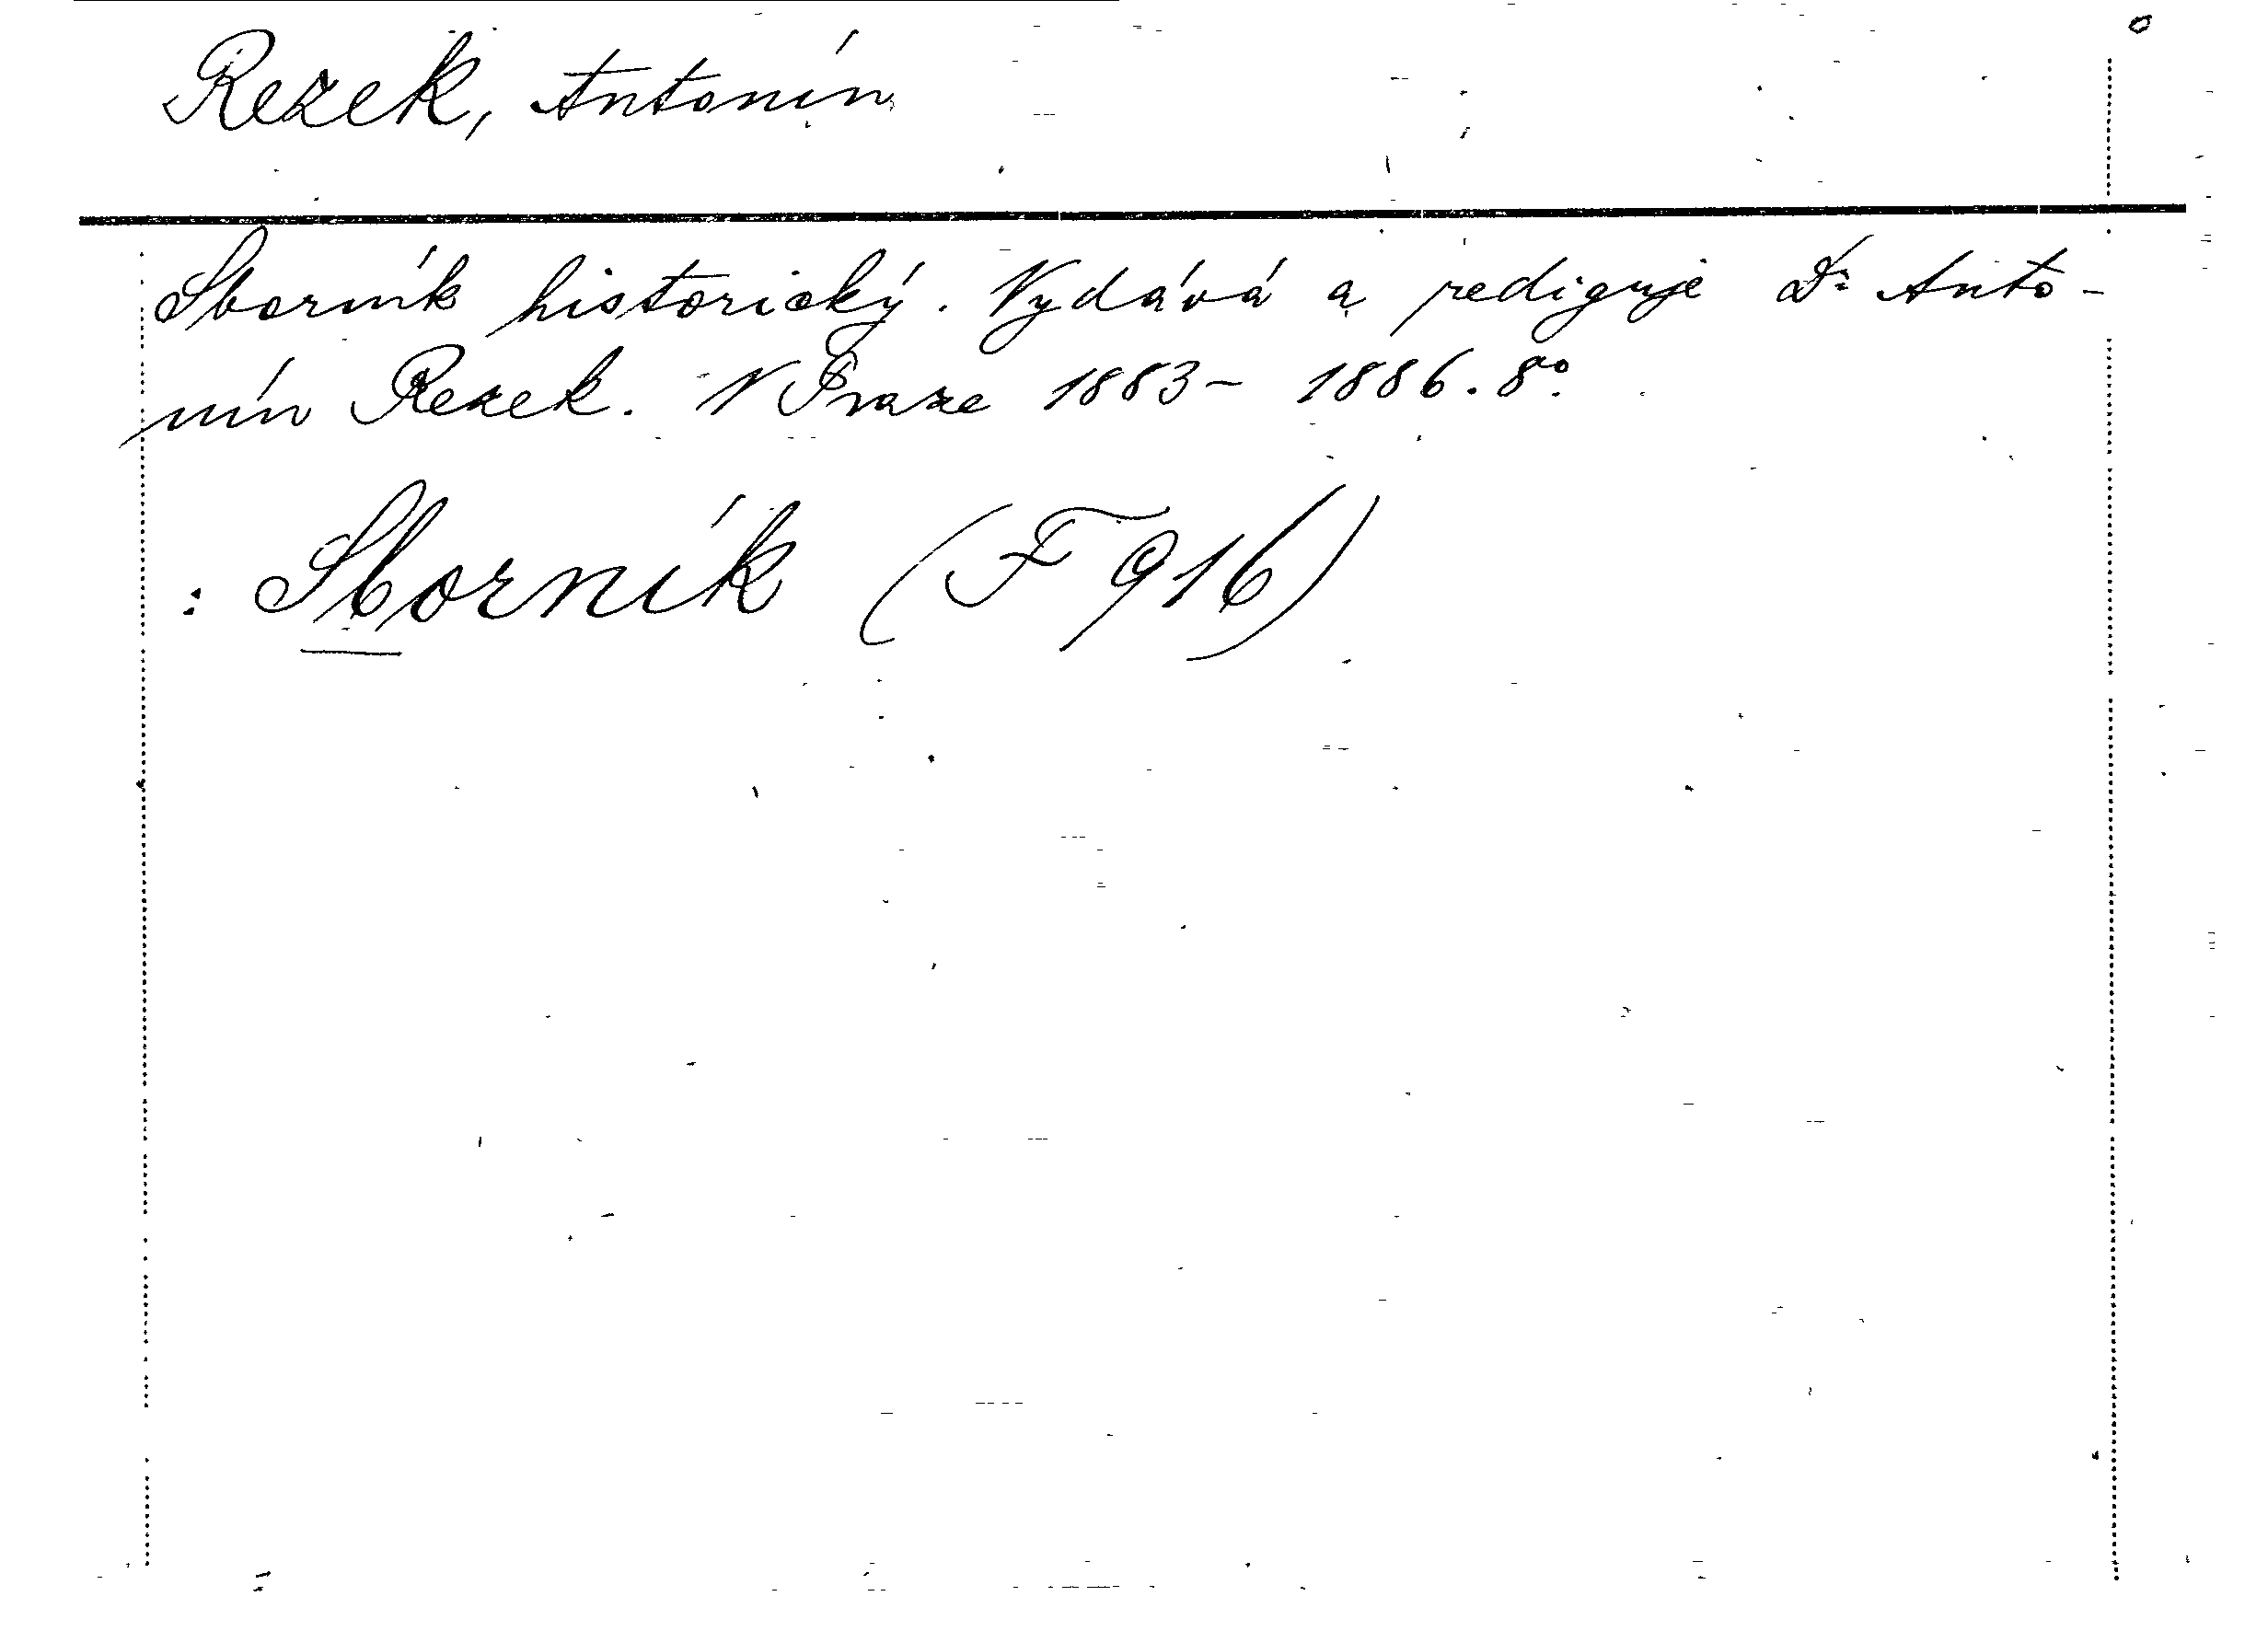 Rezek, Antonín
Sborník historický. Vydává a rediguje Dr. Anto-
nín Rezek. V Praze 1883-1886. 8°.
: Sborník (F 916)